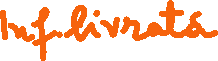 Inf. livrată